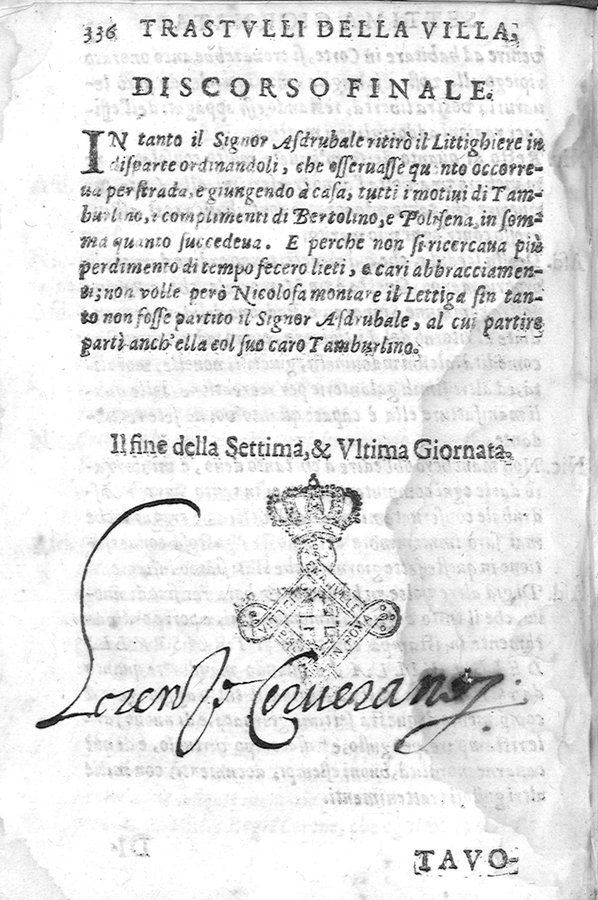 336 TRASTVLLI DELLA VILLA.
DISCORSO FINALE.
IN tanto il Signor Asdrubale ritirò il Littighiere in
disparte ordinandoli, che osseruasse quanto occorre-
ua per strada, e giungendo à casa, tutti i motiui di Tam-
burlino, i complimenti di Bertolino, e Polisena, in som-
ma quanto succedeua. E perche non si ricercaua più
perdimento di tempo fecero lieti, e cari abbracciamen-
ti; non volle però Nicolosa montare il Lettiga fin tan-
to non fosse partito il Signor Asdrubale, al cui partire
partì anch'ella col suo caro Tamburlino.
Il fine della Settima, & Vltima Giornata.
Lorenzo Ceruesano
TAVO-